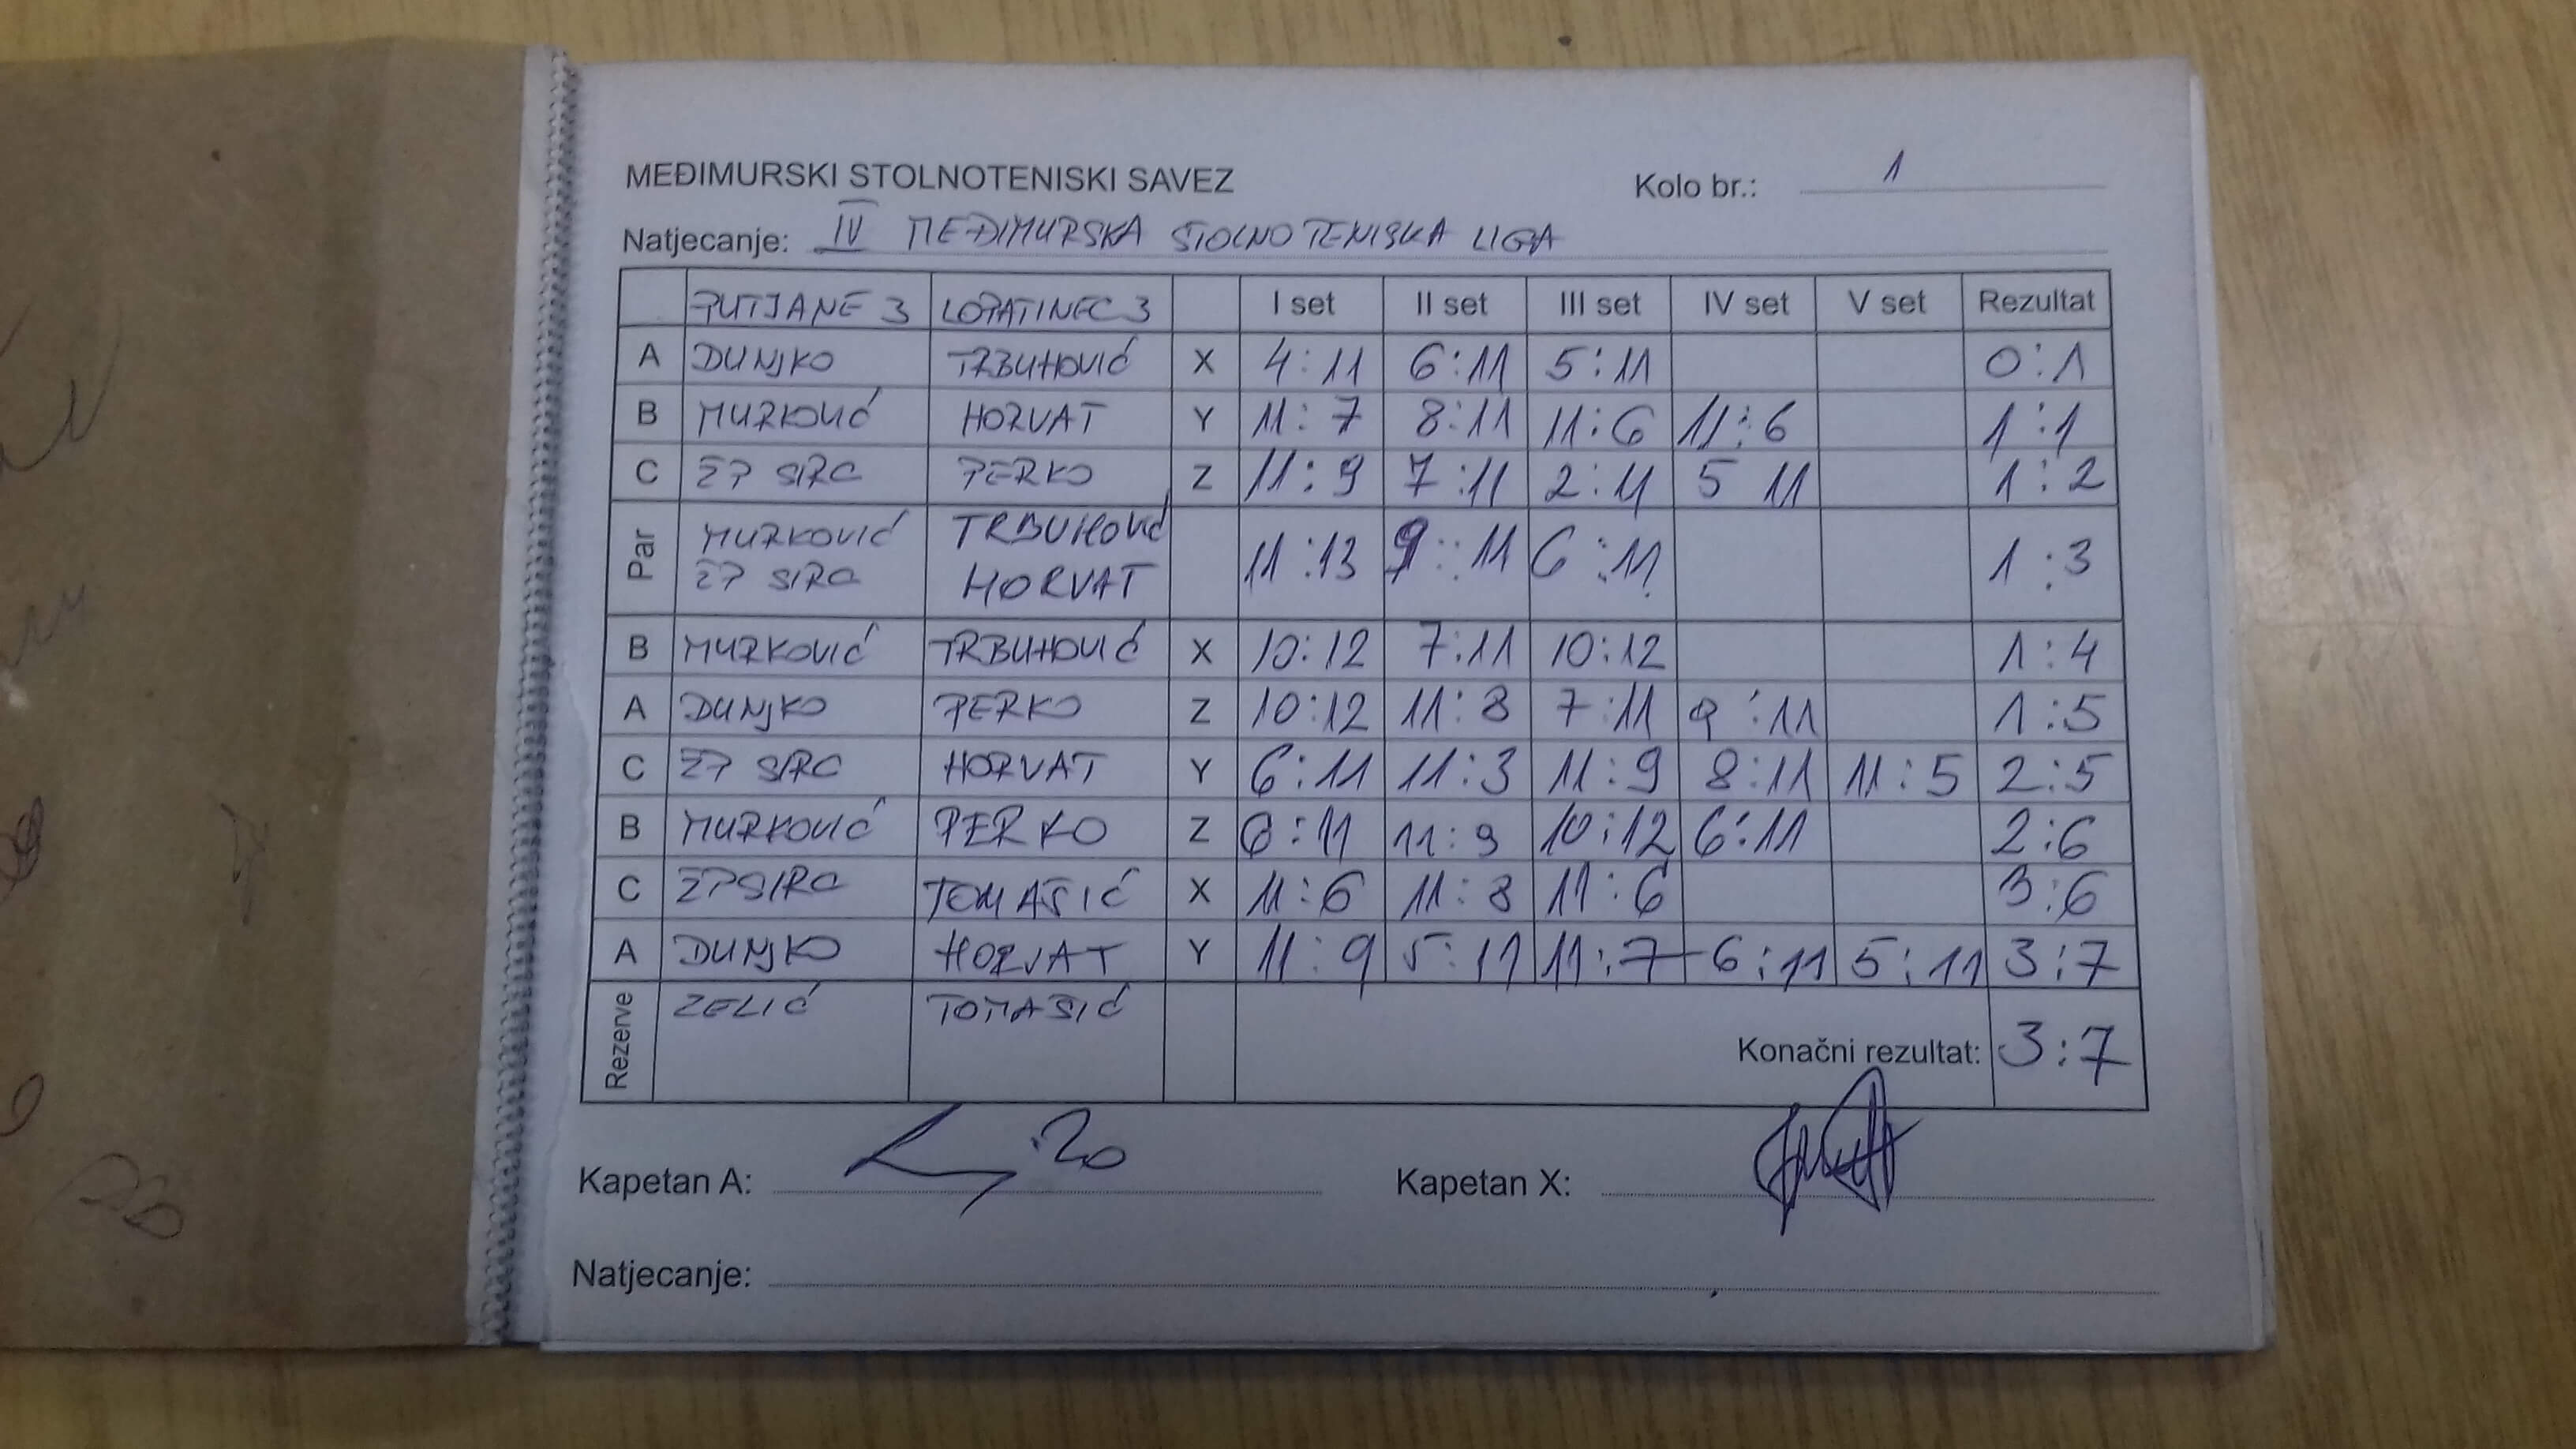 MEĐIMURSKI STOLNOTENISKI SAVEZ Kolo br.: 1
Natjecanje: IV MEĐIMURSKA STOLNOTENISKA LIGA
PUTJANE 3 LOPATINEC 3 I set II set III set IV set V set Rezultat
A DUNJKO TRBUHOVIĆ X 4:11 6:11 5:11 0:1
B MURKOVIĆ HORVAT Y 11:7 8:11 11:6 11:6 1:1
C ŽP SIRC PERKO Z 11:9 7:11 2:11 5 11 1:2
Par MURKOVIĆ TRBUHOVIĆ 11:13 9:11 6:11 1:3
ŽP SIRC HORVAT
B MURKOVIĆ TRBUHOVIĆ X 10:12 7:11 10:12 1:4
A DUNJKO PERKO Z 10:12 11:8 7:11 9:11 1:5
C ŽP SIRC HORVAT Y 6:11 11:3 11:9 8:11 11:5 2:5
B MURKOVIĆ PERKO Z 6:11 11:9 10:12 6:11 2:6
C ŽP SIRC TOMAŠIĆ X 11:6 11:8 11:6 3:6
A DUNJKO HORVAT Y 11:9 5:11 11:7 6:11 5:11 3:7
Rezerve ZELIĆ TOMAŠIĆ
Konačni rezultat: 3:7
Kapetan A: Kapetan X:
Natjecanje: